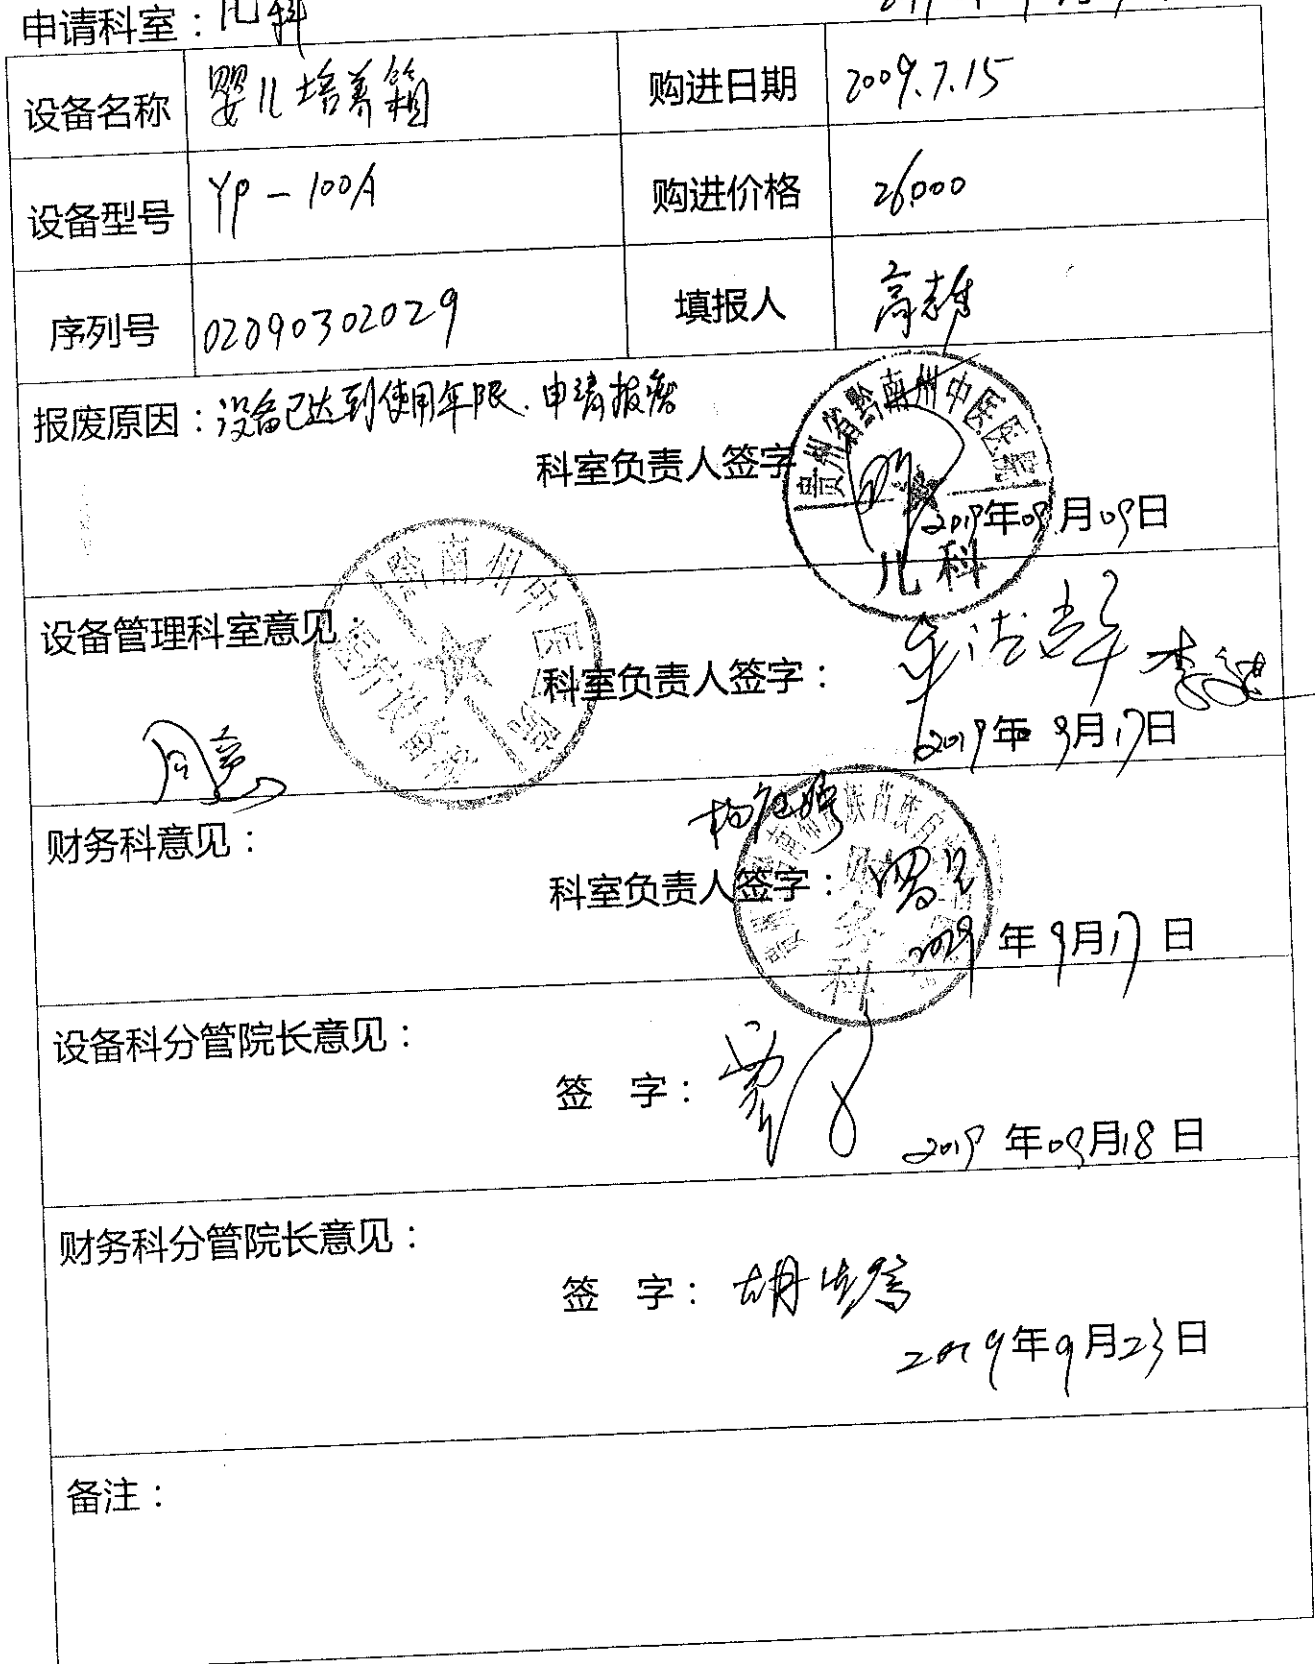 申请科室：儿科
设备名称 婴儿培养箱 购进日期 2009.7.15
设备型号 YP-100A 购进价格 26000
序列号 02090302029 填报人 高雄
报废原因：设备已达到使用年限.申请报废
科室负责人签字
贵州省黔南州中医医院
儿科
2019年09月09日
设备管理科室意见：
黔南州中医医院
科室负责人签字：
同意
2019年9月17日
财务科意见：
科室负责人签字：
财务科
2019年9月17日
设备科分管院长意见：
签 字：
2019年09月18日
财务科分管院长意见：
签 字：
2019年9月23日
备注：